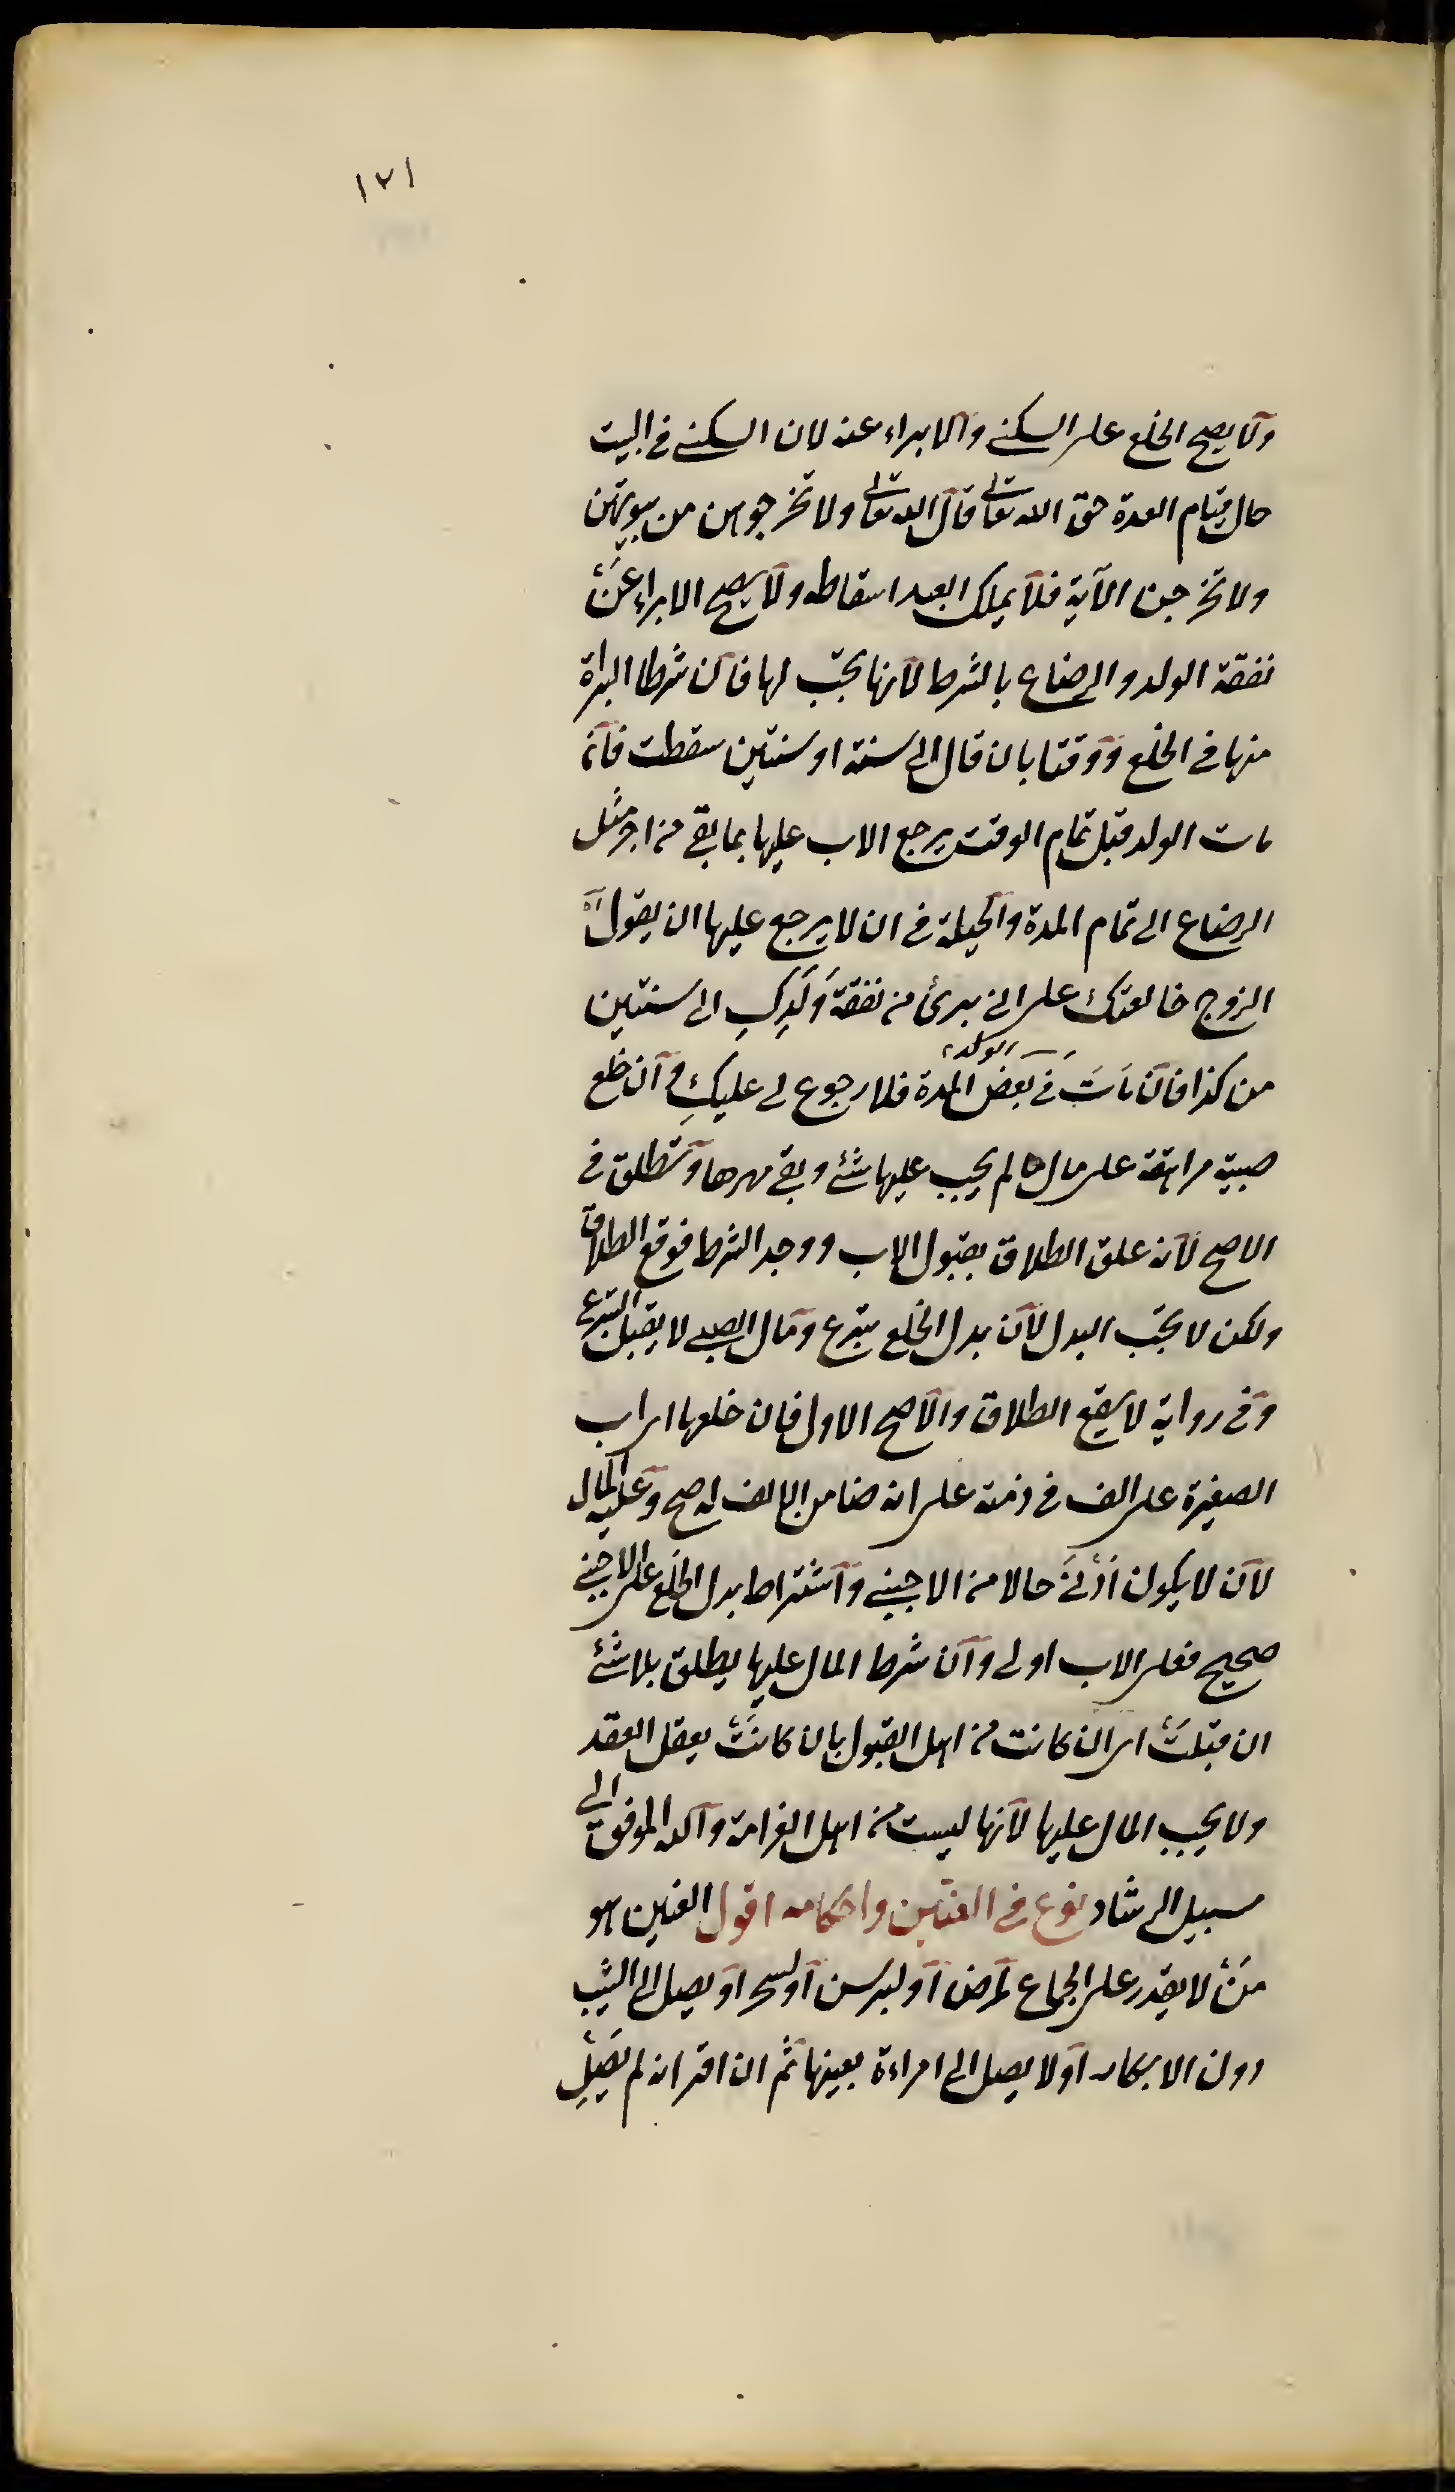 ١٧١
ولا يصح الخلع على السكنى والابراء عنه لان السكنى في البيت
حال قيام العدة حق الله تعالى قال الله تعالى ولا تخرجوهن من بيوتهن
ولا تخرجن الآية فلا يملك العبد اسقاطه ولا يصح الابراء عن
نفقة الولد والرضاع بالشرط لانها تجب لها فان شرطا البراة
منها في الخلع ووقتا بان قال الى سنة او سنتين سقطت فان
مات الولد قبل تمام الوقت يرجع الاب عليها بما بقي من اجر مثل
الرضاع الى تمام المدة والحيلة في ان لا يرجع عليها ان يقول
الزوج خالعتك على اني برئ من نفقة وَلَدِكِ الى سنتين
من كذا فان مَاتَ الولد في بَعْض المدة فلا رجوع لي عليكِ وان خلع
صبية مراهقة على مال لم يجب عليها شئ وبقي مهرها وتطلق في
الاصح لانه علق الطلاق بقبول الاب ووجد الشرط فوقع الطلاق
ولكن لا يجب البدل لان بدل الخلع تبرع ومال الصبي لا يقبل التبرع
وفي رواية لا يقع الطلاق والاصح الاول فان خلعها اى اب
الصغيرة على الف في ذمته على انه ضامن الالف له صح وعليه المال
لانه لا يكون ادنى حالا من الاجنبي واشتراط بدل الخلع على الاجنبي
صحيح فعلى الاب اولى وان شرط المال عليها يطلق بلا شئ
ان قبلت اى ان كانت من اهل القبول بان كانت يعقل العقد
ولا يجب المال عليها لانها ليست من اهل الغرامة والله الموفق الى
سبيل الرشاد نوع في العنين واحكامه اقول العنين هو
مَنْ لا يقدر على الجماع لمرض او لكبر سن او لسحر او يصل الى الثيب
دون الابكار او لا يصل الى امراءة بعينها ثم ان اقر انه لم يَصِلْ